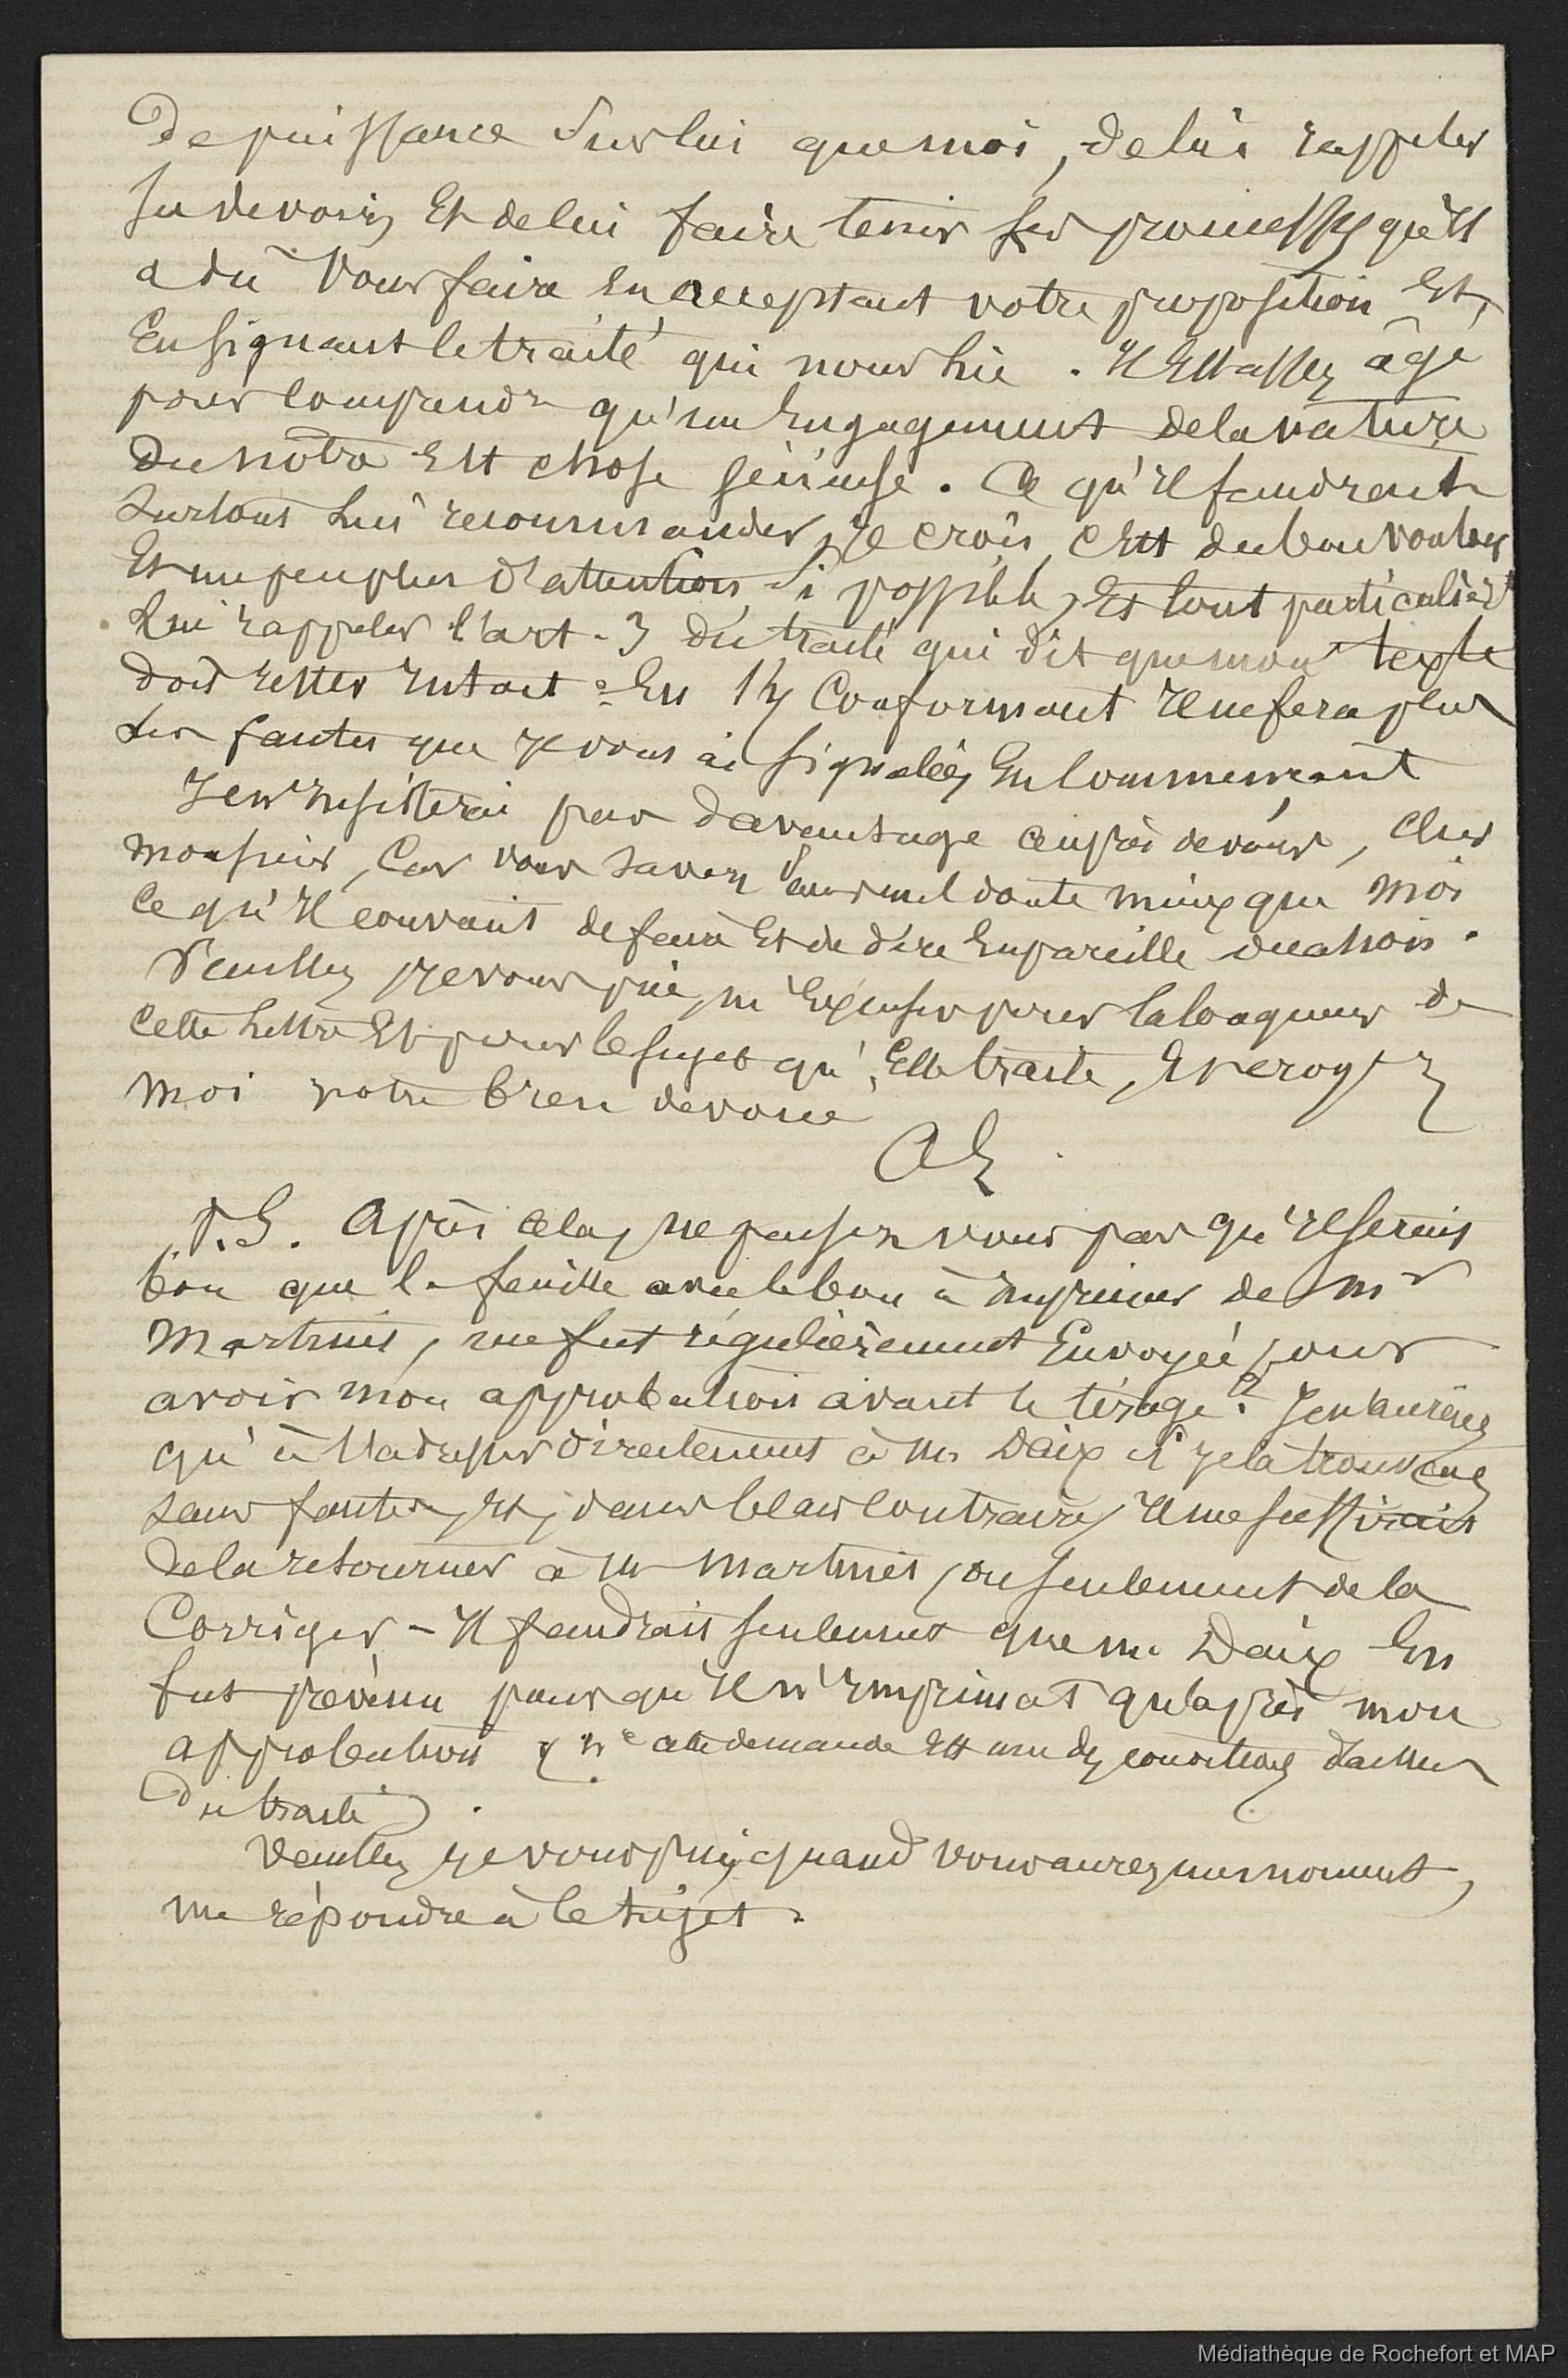 de puissance sur lui que moi, de lui rappeler
ses devoirs et de lui faire tenir les promesses qu'il
a dû vous faire en acceptant votre proposition et,
en signant le traité qui nous lie. Il est assez âgé
pour comprendre qu'un engagement de la nature
du notre est chose sérieuse. Ce qu'il faudrait
surtout lui recommander, je crois, c'est du bon vouloir
et un peu plus d'attention si possible, et tout particulièrt
lui rappeler l'art. 3 du traité qui dit que mon texte
doit rester intact. En s'y conformant il ne fera plus
les fautes que je vous ai signalées en commençant
Je n'insisterai pas davantage auprès de vous, cher
monsieur, car vous savez sans nul doute mieux que moi
ce qu'il convient de faire et de dire en pareille occasion.
Veuillez je vous prie, m'excuser pour la longueur de
cette lettre et pour le sujet qu'elle traite, et croyez
moi votre bien dévoué
P.S. Après cela, ne pensez vous pas qu'il serait
bon que la feuille avec le bon à imprimer de Mr
Martinès, me fut régulièrement envoyée pour
avoir mon approbation avant le tirage? Je n'aurais
qu'à l'adresser directement à Mr Daix si je la trouvais
sans fautes, et, dans le cas contraire, il me suffirait
de la retourner à Mr Martinès, ou seulement de la
corriger - Il faudrait seulement que Mr Daix en
fut prévenu pour qu'il n'imprimat qu'après mon
approbation cette demande est une des conditions d'ailleurs
du traité).
Veuillez je vous prie, quand vous aurez un moment,
me répondre à ce sujet.
Médiathèque de Rochefort et MAP